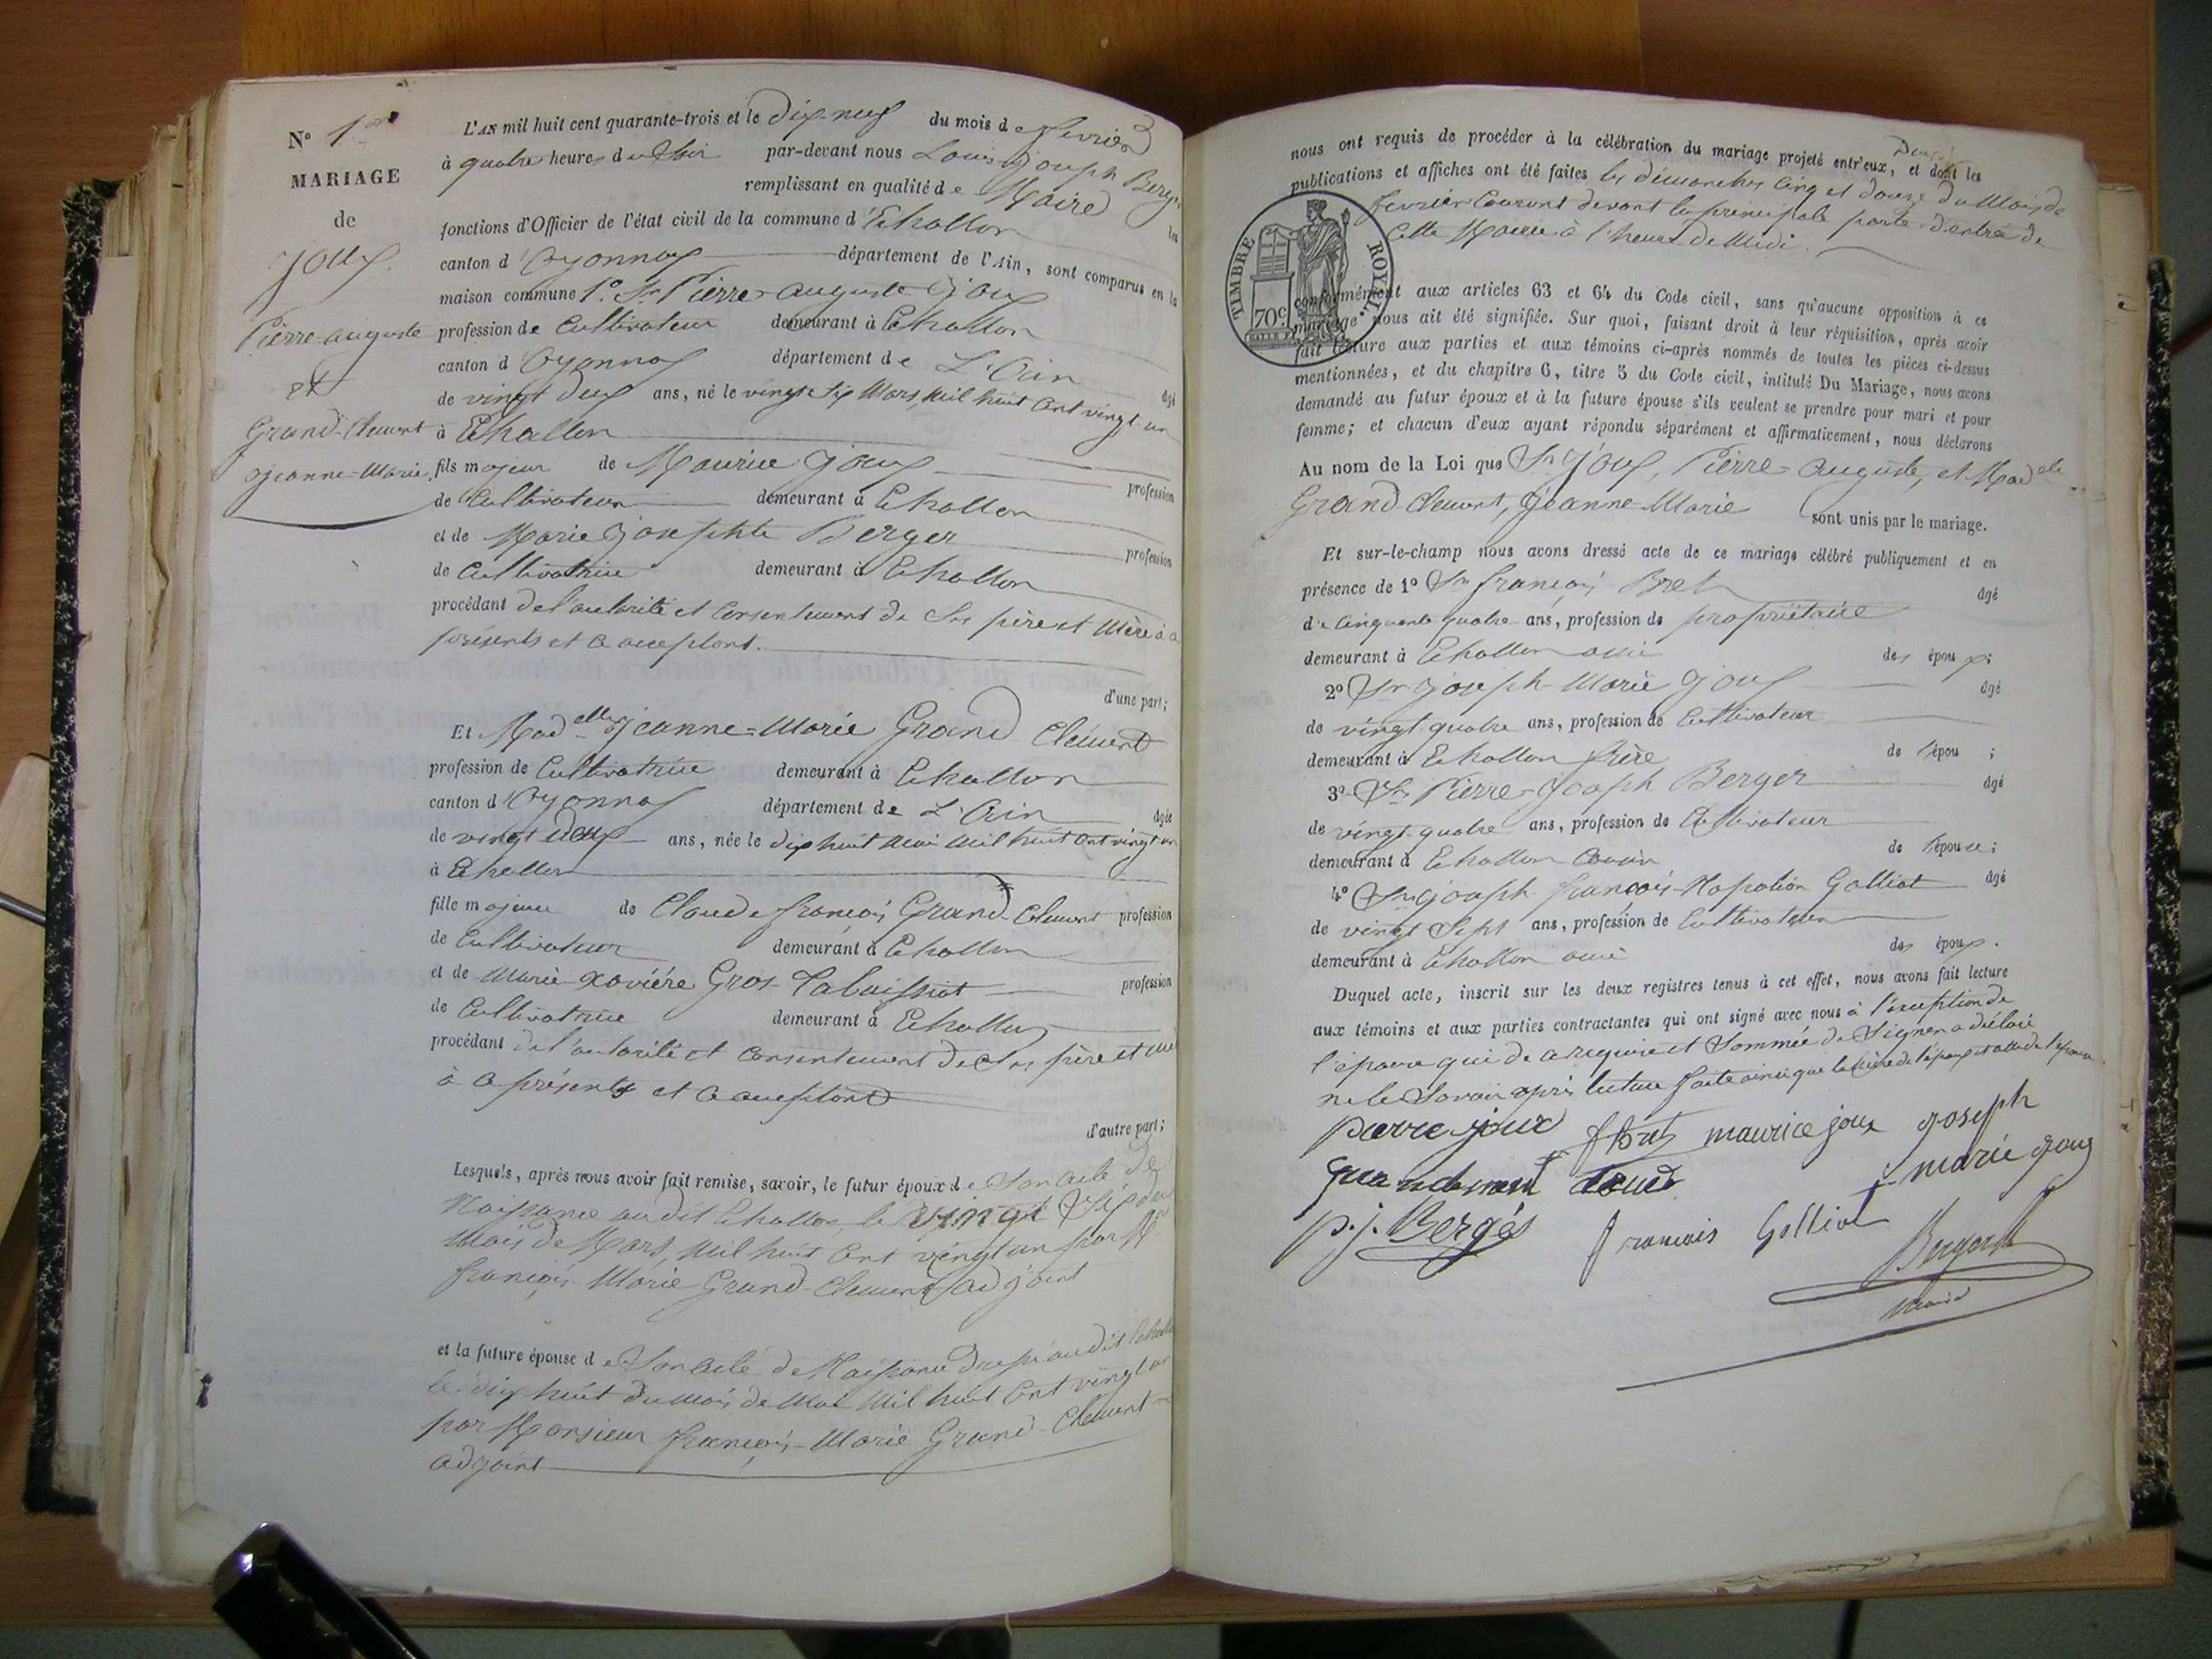 N° 1er
MARIAGE
de
Joux
Pierre-auguste
et
Grand-Clement
Jeanne-Marie
L'AN mil huit cent quarante-trois et le dix-neuf du mois de fevrier
à quatre heures du Soir par-devant nous Louis Joseph Berger
remplissant en qualité de Maire les
fonctions d'Officier de l'état civil de la commune d'Echallon
canton d'Oyonnax département de l'Ain, sont comparus en la
maison commune 1° Sr Pierre-auguste Joux
profession de Cultivateur demeurant à Echallon
canton d'Oyonnax département de L'Ain âgé
de vingt deux ans, né le vingt Six Mars, Mil huit Cent vingt-un
à Echallon
fils majeur de Maurice Joux profession
de Cultivateur demeurant à Echallon
et de Marie Josephte Berger profession
de Cultivatrice demeurant à Echallon
procédant de l'autorité et Consentement de Ses père et Mère à ce
présents et ce acceptant.
d'une part;
Et Madelle Jeanne-Marie Grand Clément
profession de Cultivatrice demeurant à Echallon
canton d'Oyonnax département de L'Ain âgée
de vingt deux ans, née le dix huit Mai Mil huit Cent vingt un
à Echallon
fille majeure de Claude françois Grand-Clement profession
de Cultivateur demeurant à Echallon
et de Marie Xavière Gros profession
de Cultivatrice demeurant à Echallon
procédant de l'autorité et Consentement de Ses père et mère
à ce présents et ce acceptant
d'autre part;
Lesquels, après nous avoir fait remise, savoir, le futur époux de Son acte de
Naissance audit Echallon, le vingt Six du
Mois de Mars, Mil huit Cent vingt un par Mr
françois-Marie Grand-Clement adjoint
et la future épouse de Son acte de Naissance audit Echallon
le dix huit du Mois de Mai Mil huit Cent vingt un
par Monsieur françois-Marie Grand-Clement
adjoint
nous ont requis de procéder à la célébration du mariage projeté entr'eux, et dont les
publications et affiches ont été faites les dimanches Cinq et douze du Mois de
fevrier Courant devant la principale porte d'entrée de
Cette Mairie à l'heure de Midi.
TIMBRE ROYAL.
70c
conformément aux articles 63 et 64 du Code civil, sans qu'aucune opposition à ce
mariage nous ait été signifiée. Sur quoi, faisant droit à leur réquisition, après avoir
fait lecture aux parties et aux témoins ci-après nommés de toutes les pièces ci-dessus
mentionnées, et du chapitre 6, titre 5 du Code civil, intitulé Du Mariage, nous avons
demandé au futur époux et à la future épouse s'ils veulent se prendre pour mari et pour
femme; et chacun d'eux ayant répondu séparément et affirmativement, nous déclarons
Au nom de la Loi que Sr Joux, Pierre-Auguste, et Madelle
Grand-Clement, Jeanne-Marie sont unis par le mariage.
Et sur-le-champ nous avons dressé acte de ce mariage célébré publiquement et en
présence de 1° Sr françois Bret âgé
de Cinquante quatre ans, profession de propriétaire
demeurant à Echallon ami des époux;
2° Sr Joseph-Marie Joux âgé
de vingt quatre ans, profession de Cultivateur
demeurant à Echallon frère de l'épou ;
3° Sr Pierre-Joseph Berger âgé
de vingt-quatre ans, profession de Cultivateur
demeurant à Echallon Cousin de l'épouse;
4° Sr Joseph françois-Napoléon Galliot âgé
de vingt Sept ans, profession de Cultivateur
demeurant à Echallon ami des époux.
Duquel acte, inscrit sur les deux registres tenus à cet effet, nous avons fait lecture
aux témoins et aux parties contractantes qui ont signé avec nous à l'exception de
l'épouse qui de ce requise et Sommée de Signer a déclaré
ne le Savoir après lecture faite ainsi que la Mère de l'époux et celle de l'épouse
pierre joux fBret maurice joux joseph
marie joux
claude
p.j. Berger francois Galliot
Berger
Maire